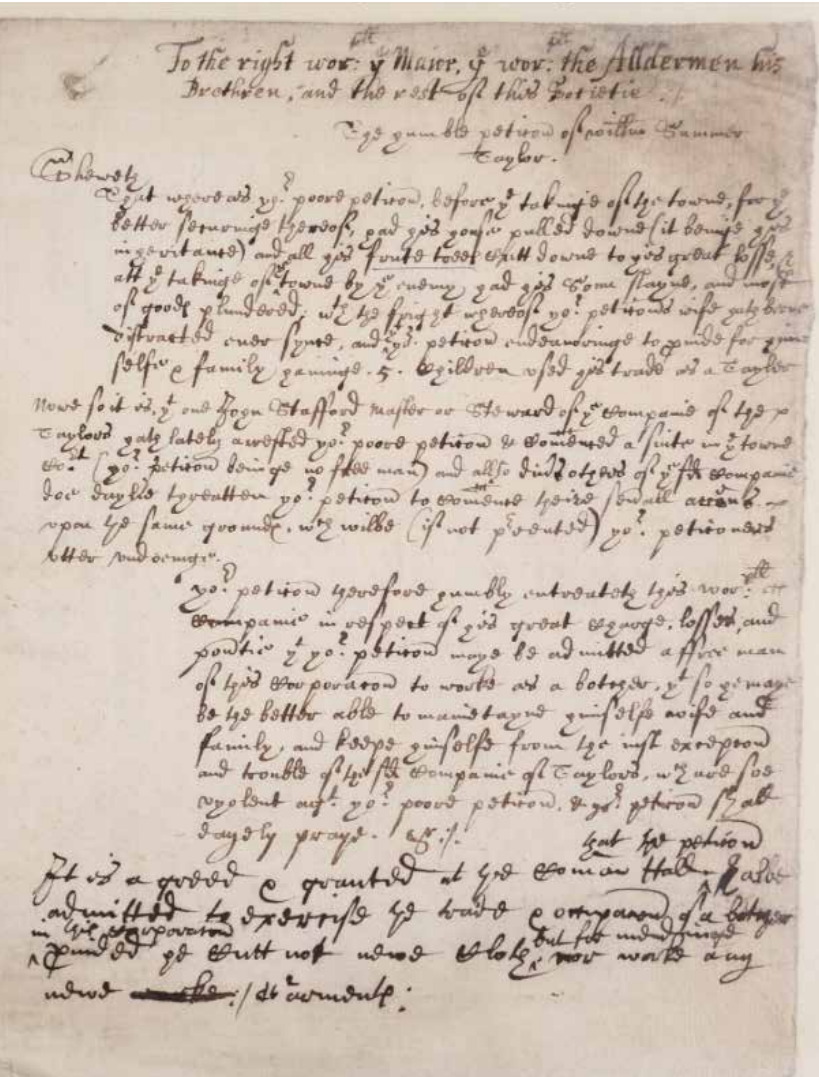 To the right wor:pll ye Maior, ye wor:pll the Alldermen his
Brethren, and the rest of this Societie.
The humble peticon of willm Summer
Taylor.
Sheweth
That whereas yor poore peticon, before ye takinge of the towne, for ye
better securinge thereof, had his house pulled downe (it beinge his
inheritance) and all his frute trees cutt downe to his great losse, &
att ye takinge of ye towne by ye enemy had his Sonn slayne, and most
of goods plundered; wth the fright whereof yor peticons wife hath beene
distracted ever synce, and yor peticon endeavoringe to pvide for himselfe
selfe & family havinge .5. Children used his trade as a Taylor
Nowe so it is, yt one John Stafford Master or Steward of ye Companie of the
Taylors hath lately arrested yor poore peticon & comenced a suite in ye towne
Cort (yor peticon beinge no free man) and allso divrs others of ye sd Companie
doe daylie threatten yor peticon to comence theire sevrall accons
upon the same grounds, wch wilbe (if not prvented) yor peticoners
utter undoeinge.
yor peticon therefore humbly entreateth this wor:pll
Companie in respect of his great Charge, losses, and
povrtie yt yor peticon maye be admitted a ffree man
of this Corporacon to worke as a botcher, yt so he maye
be the better able to mainetayne himselfe wife and
family, and keepe himselfe from the just excepcon
and trouble of the sd Companie of Taylors, wch are soe
vyolent agt yor poore peticon, & yor peticon shall
dayely praye. &c ./.
that the peticon
It is agreed & granted at the Comon Hall shalbe
admitted to exercise the trade & occupacon of a botcher
in this Corporacon
pvided he Cutt not newe Cloth but for mendinge nor worke any
newe Garments: